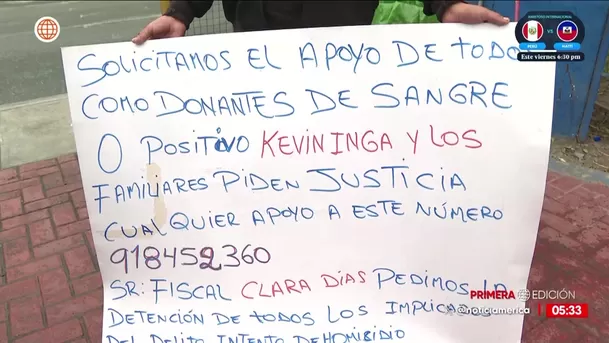 AMISTOSO INTERNACIONAL
VS
PERÚ HAITÍ
Este viernes 4:30 pm
SOLICITAMOS EL APOYO DE TODO
COMO DONANTES DE SANGRE
O POSITIVO KEVIN INGA Y LOS
FAMILIARES PIDEN JUSTICIA
CUALQUIER APOYO A ESTE NÚMERO
918452360
SR: FISCAL CLARA DÍAS PEDIMOS LA
DETENCIÓN DE TODOS LOS
DEL DELITO INTENTO DEHOMISIDIO
PRIMERA EDICIÓN
@noticiamerica
05:33